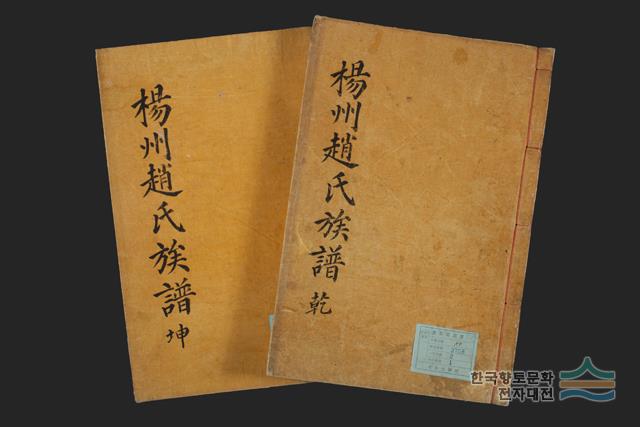 楊州趙氏族譜 坤
楊州趙氏族譜 乾
한국향토문화
전자대전